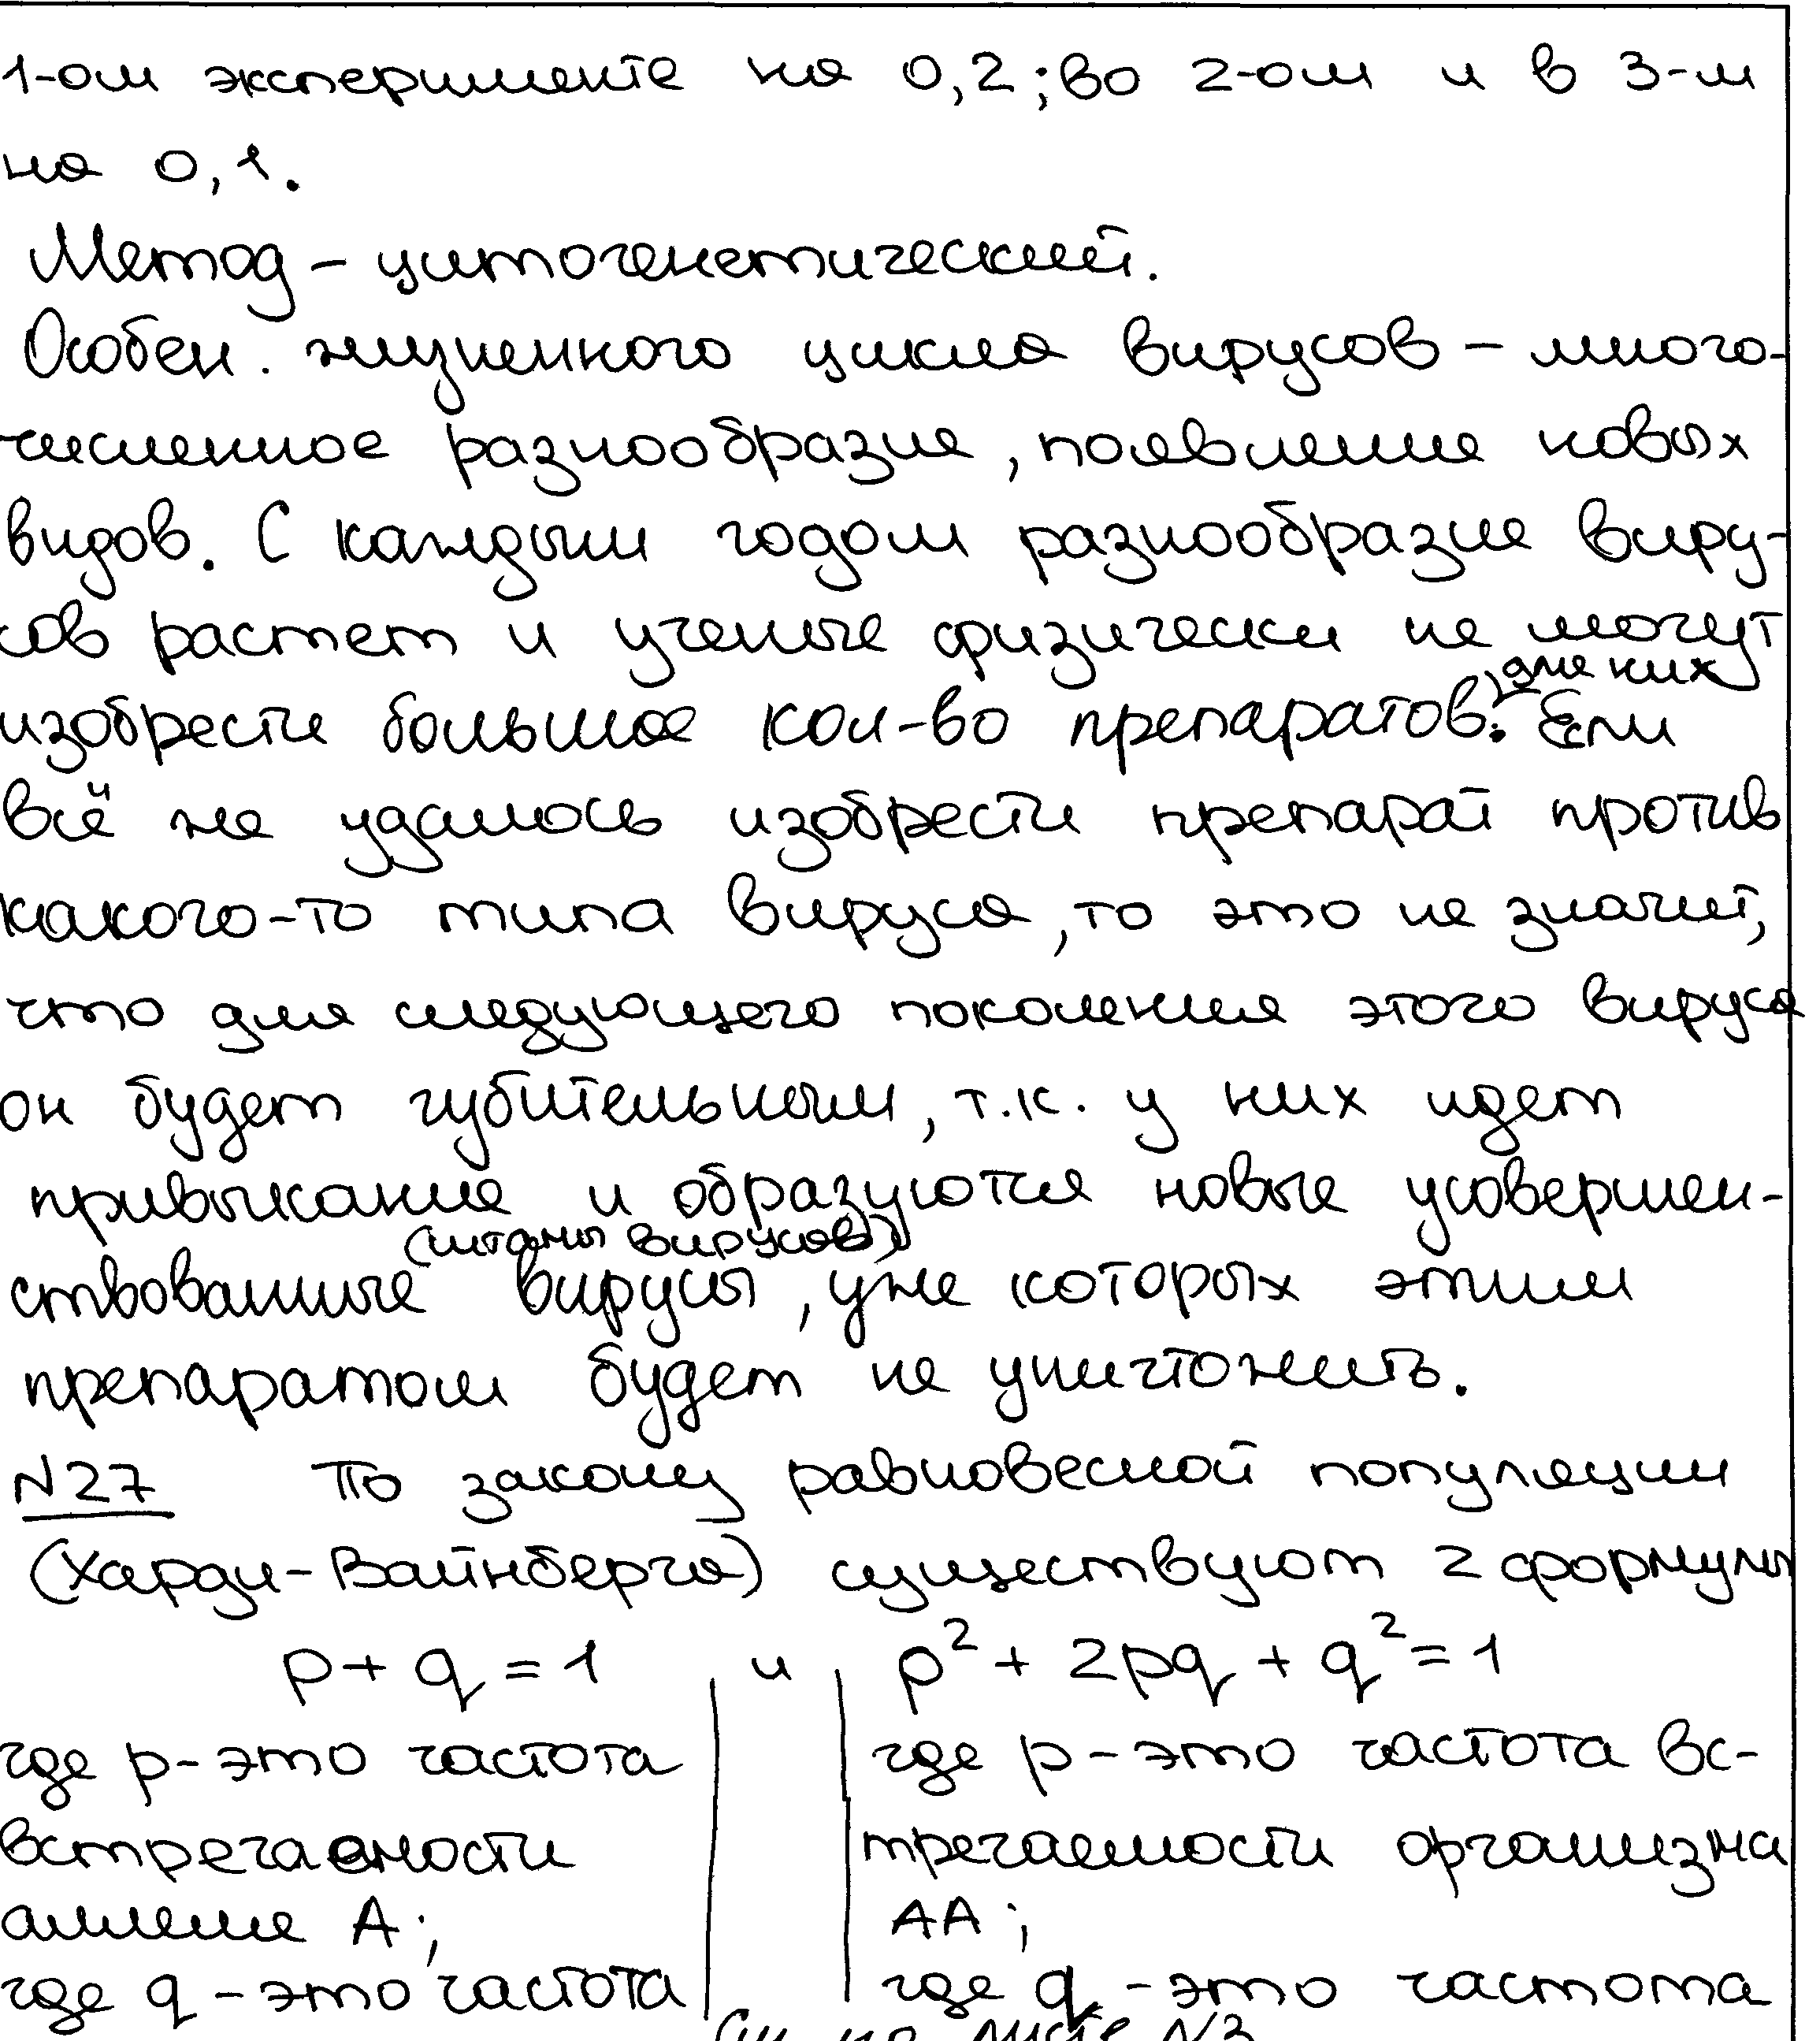 1-ом эксперименте на 0,2; во 2-ом и в 3-м
на 0,1.
Метод – цитогенетический.
Особен. жизненного цикла вирусов – много-
численное разнообразие, появление новых
видов. С каждым годом разнообразие виру-
сов растет и ученые физически не могут
изобрести большое кол-во препаратов для них. Если
всё же удалось изобрести препарат против
какого-то типа вируса, то это не значит,
что для следующего поколения этого вируса
он будет губительным, т.к. у них идет
привыкание и образуются новые усовершен-
ствованные (штамы вирусов) вирусы, уже которых этим
препаратом будет не уничтожить.
N27 По закону равновесной популяции
(Харди-Вайнберга) существуют 2 формулы
p + q = 1 и p² + 2pq + q² = 1
где p – это частота
встречаемости
аллеля А;
где q – это частота
где p – это частота вс-
тречаемости организма
АА;
где q – это частота
См на листе N3